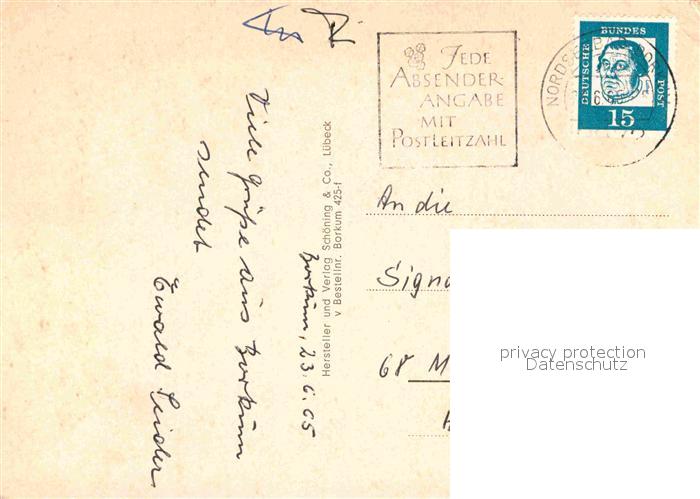 JEDE
ABSENDER-
ANGABE
MIT
POSTLEITZAHL
DEUTSCHE BUNDES POST
15
NORDSEEBAD
Borkum, 23.6.65
Viele Grüße aus Borkum
sendet
Ewald
Hersteller und Verlag Schöning & Co., Lübeck
v Bestellnr. Borkum 425-f
An die
Signa
68 M
privacy protection
Datenschutz